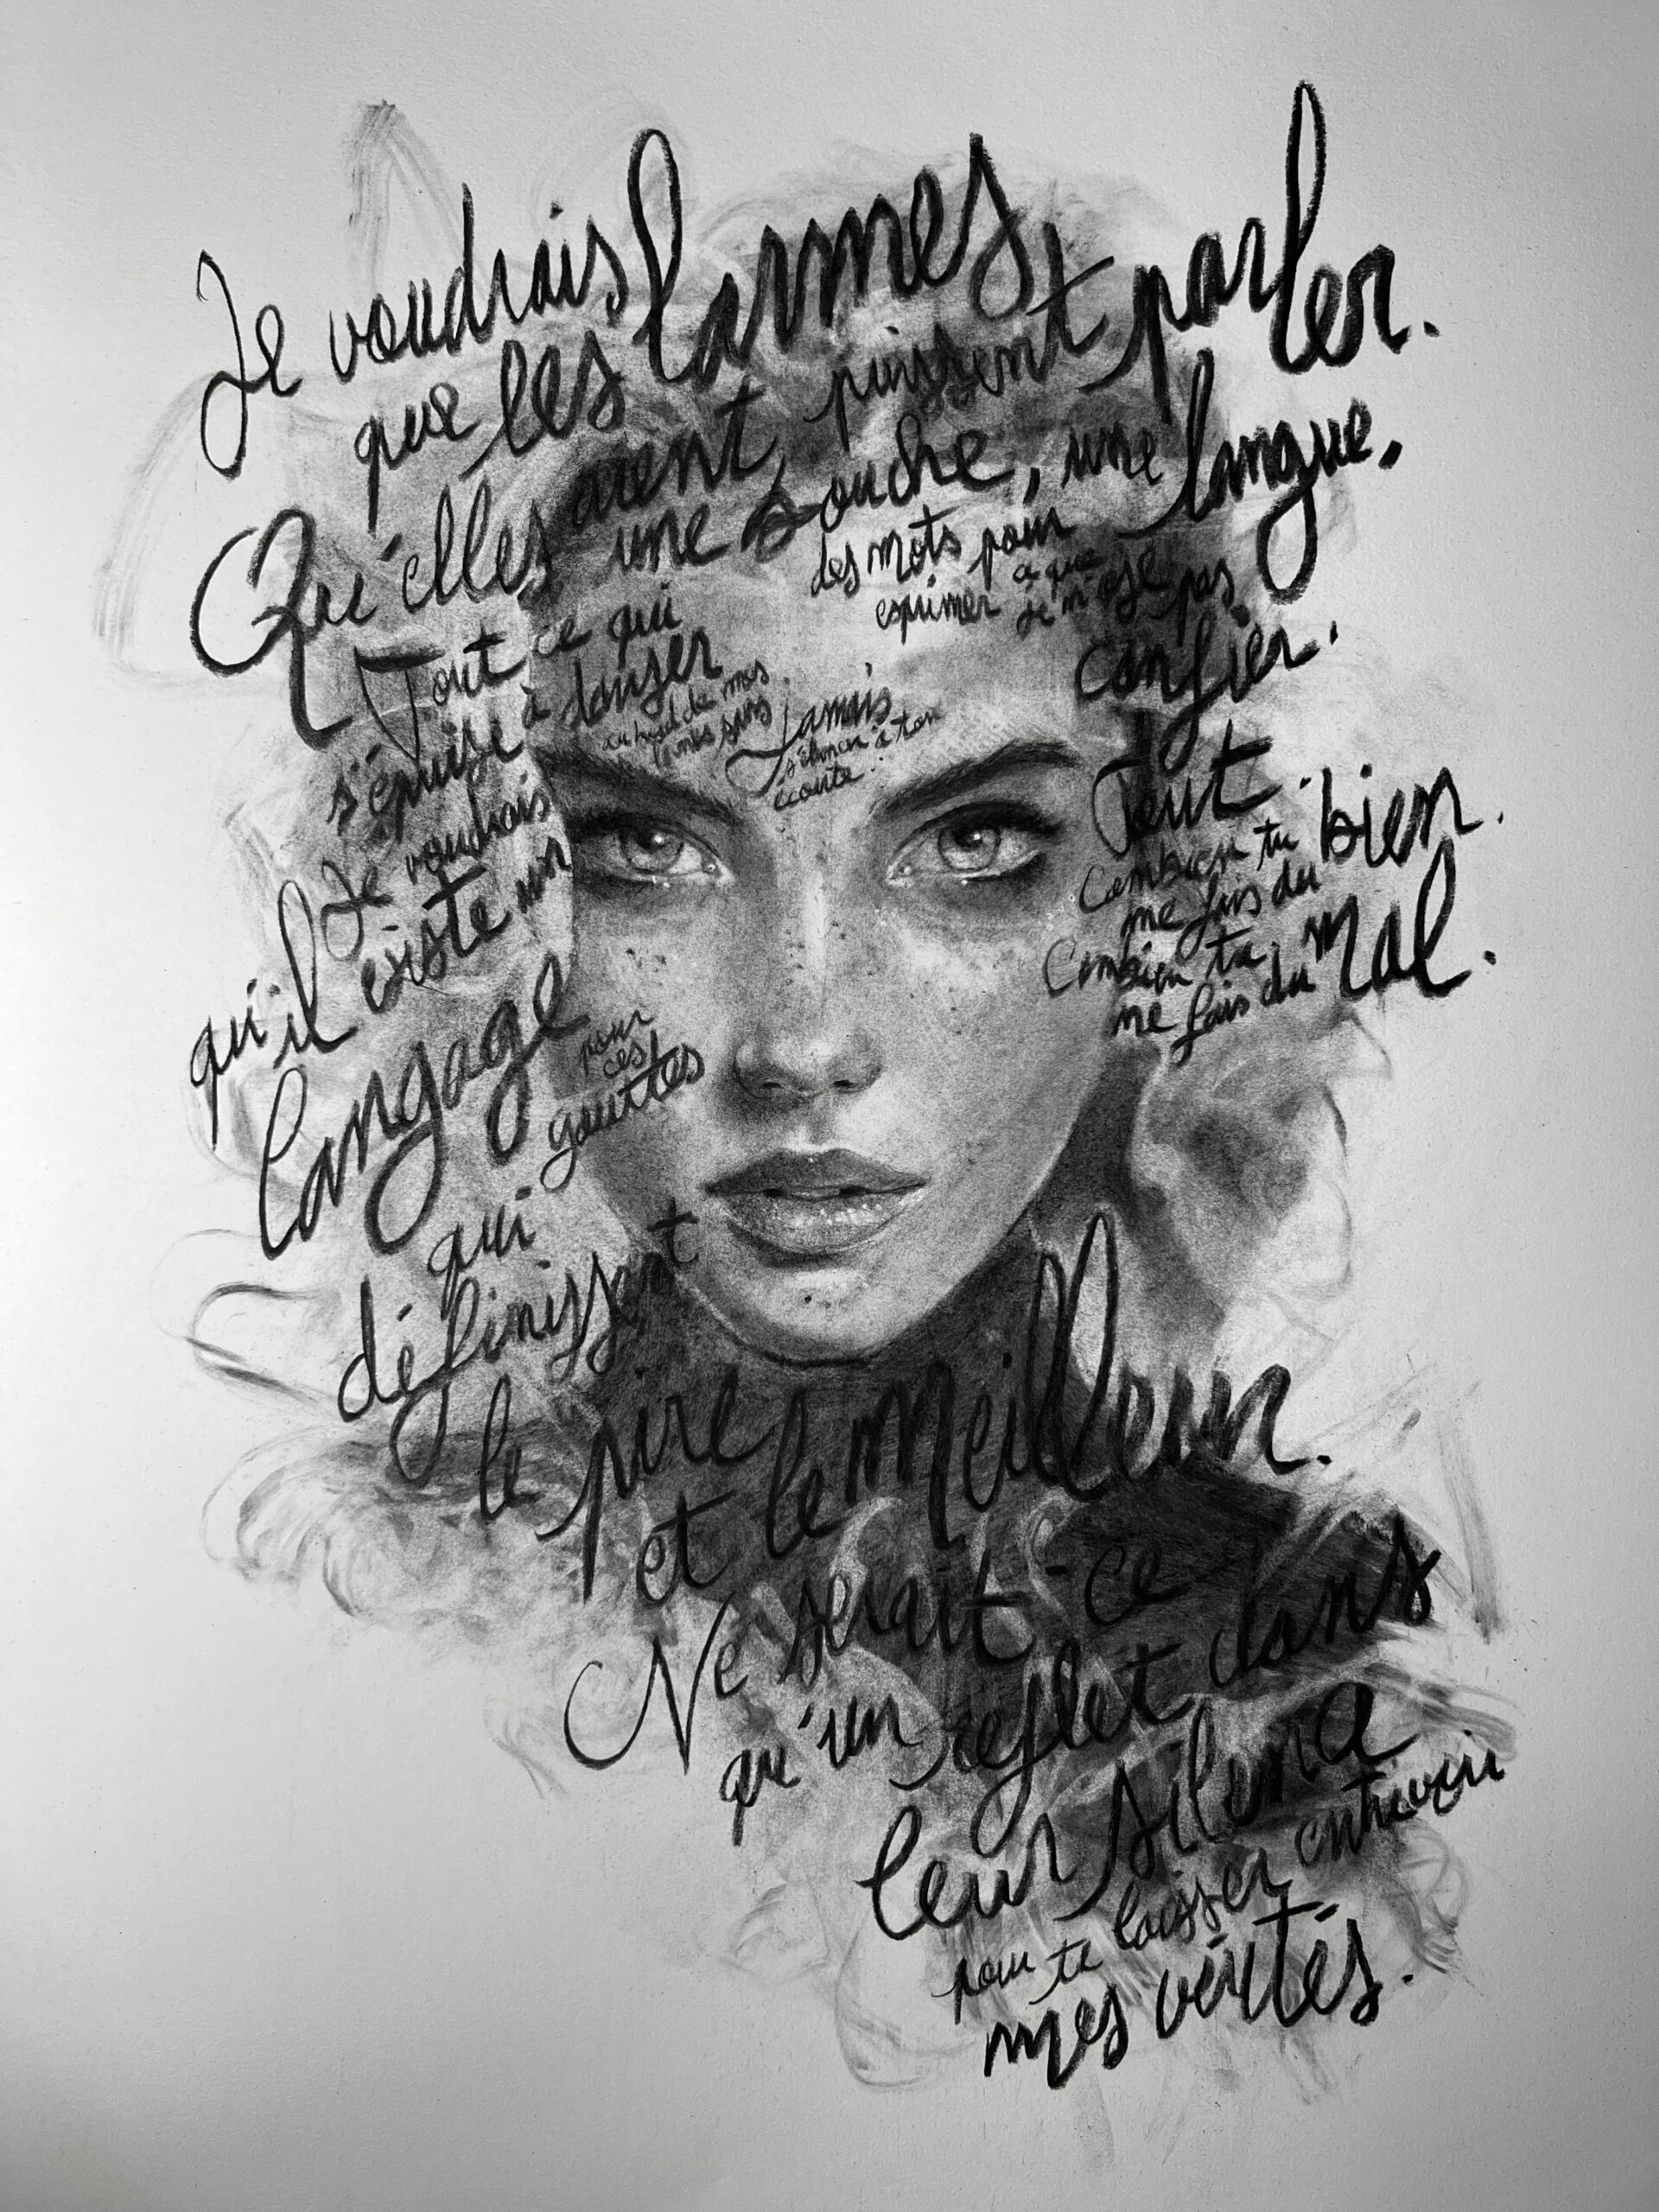 Je voudrais
que les larmes puissent parler.
Qu'elles aient
une bouche, une langue,
des mots pour
exprimer ce que
je n'ose pas
confier.
Tout ce qui
s'épuise à danser
au bord de mes
sans
Jamais
s'élancer à ton
écoute.
Tout.
Combien tu
me fais du bien.
Combien tu
me fais du mal.
Je voudrais
qu'il existe un
langage
pour
ces
gouttes
qui
définissent
le pire
et le meilleur.
Ne serait-ce
qu'un reflet dans
leur silence
pour te laisser entrevoir
mes vérités.